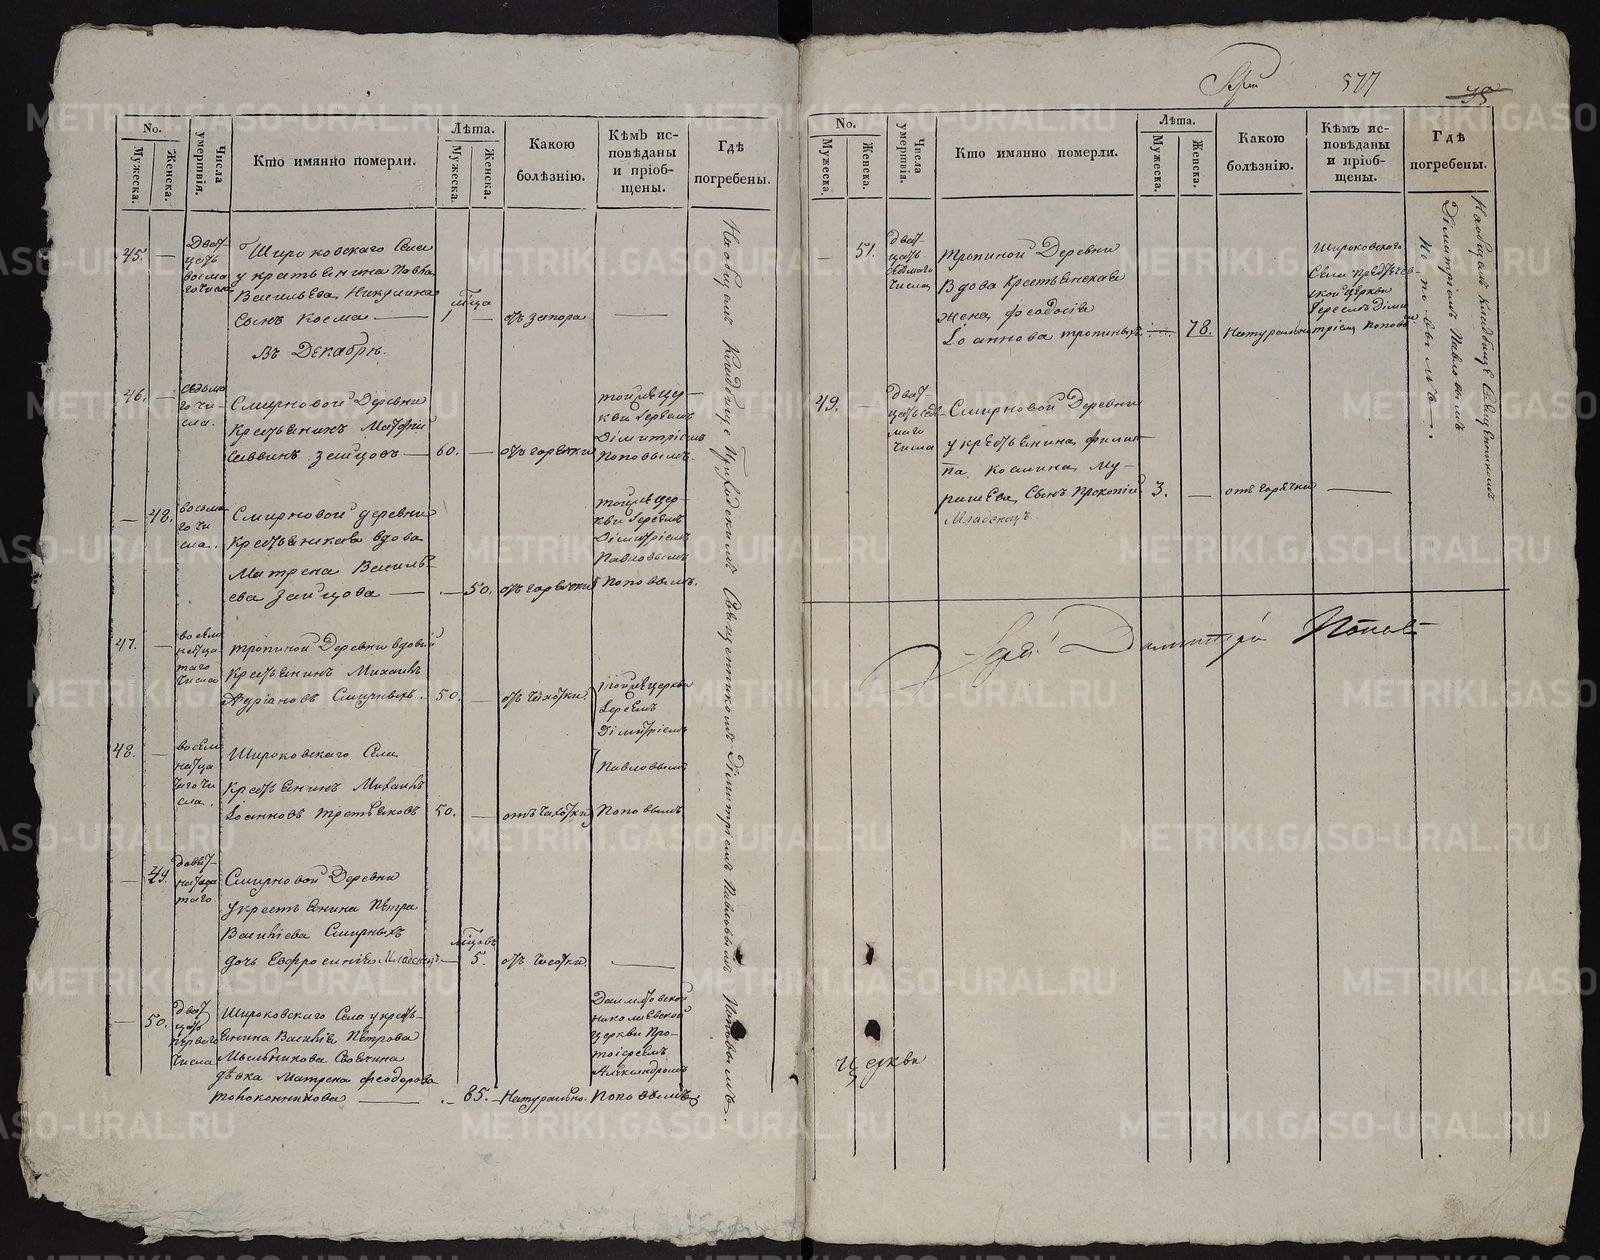 577
75
No.
Мужеска.
Женска.
Числа умертвія.
Кто имянно померли.
Лѣта.
Мужеска.
Женска.
Какою болѣзнію.
Кѣмъ исповѣданы и пріобщены.
Гдѣ погребены.
45. —
Двадцать восьмаго числа
Широковскаго Села
у крестьянина Павла
Васильева
Сынъ Косма —
1 — отъ запора —
Въ Декабрѣ.
46. —
седьмаго числа.
Смирновой Деревни
Крестьянинъ
Саввинъ Зайцовъ — 60. — отъ горячки
тойже церкви Іереемъ Димитріемъ Поповымъ.
— 48.
восьмаго числа.
Смирновой деревни
Крестьянская вдова
Матрена Васильева Зайцова — . — 50. отъ горячки
тойже церкви Іереемъ Димитріемъ Павловымъ Поповымъ.
47. —
Тропиной Деревни вдовый
Крестьянинъ Михаилъ
Смирныхъ. 50. — отъ чахотки.
тойже церкви Іереемъ Димитріемъ
48. —
Широковскаго Села
Крестьянинъ Михаилъ
Іоанновъ Третьяковъ 50. — отъ чахотки
Павловымъ
Поповымъ
— 49.
девятнатцатаго
Смирновой Деревни
у крестьянина Петра
Васильева Смирныхъ
дочь Евфросинія младенецъ — 5. отъ чахотки. —
— 50.
двадцать перваго числа
Широковскаго Села у крестьянина Василія Петрова
Мыльникова
дѣвка Матрена Феодорова
— . — 85. — Натурально.
Далматовской Николаевской церкви Протоіереемъ Александромъ Поповымъ
На общемъ кладбище Приходскимъ Священникомъ Димитріемъ Павловымъ Поповымъ.
No.
Мужеска.
Женска.
Числа умертвія.
Кто имянно померли.
Лѣта.
Мужеска.
Женска.
Какою болѣзнію.
Кѣмъ исповѣданы и пріобщены.
Гдѣ погребены.
— 51.
двадцать седмаго числа
Тропиной Деревни
Вдова Крестьянская
жена Феодосія
Іоаннова Тропиныхъ. — 78. Натурально
Широковскаго Села церкви Іереемъ Димитріемъ Поповымъ
49. —
Смирновой Деревни
у крестьянина Филиппа Космина
Сынъ Прокопій 3. — отъ горячки —
Младенецъ.
На общемъ кладбище Священникомъ
Димитріемъ Павловымъ
Поповымъ.
Димитрій Поповъ
Церкви
METRIKI.GASO-URAL.RU